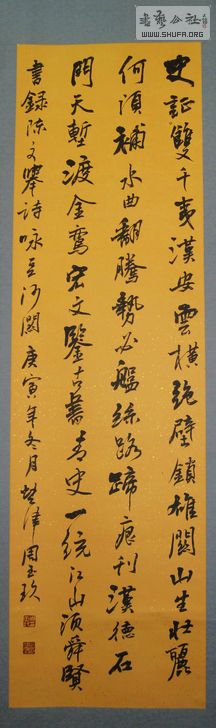 书艺公社
WWW.SHUFA.ORG
史証雙千夷漢安雲橫絕壁鎖雄關山生壯麗
何須補水曲翻騰勢必艦絲路蹄痕刊漢德石
門天塹渡金鸞宏文鑒古書青史一統江山頌舜賢
書錄陳文舉詩咏豆沙關庚寅年冬月楚津周玉玖